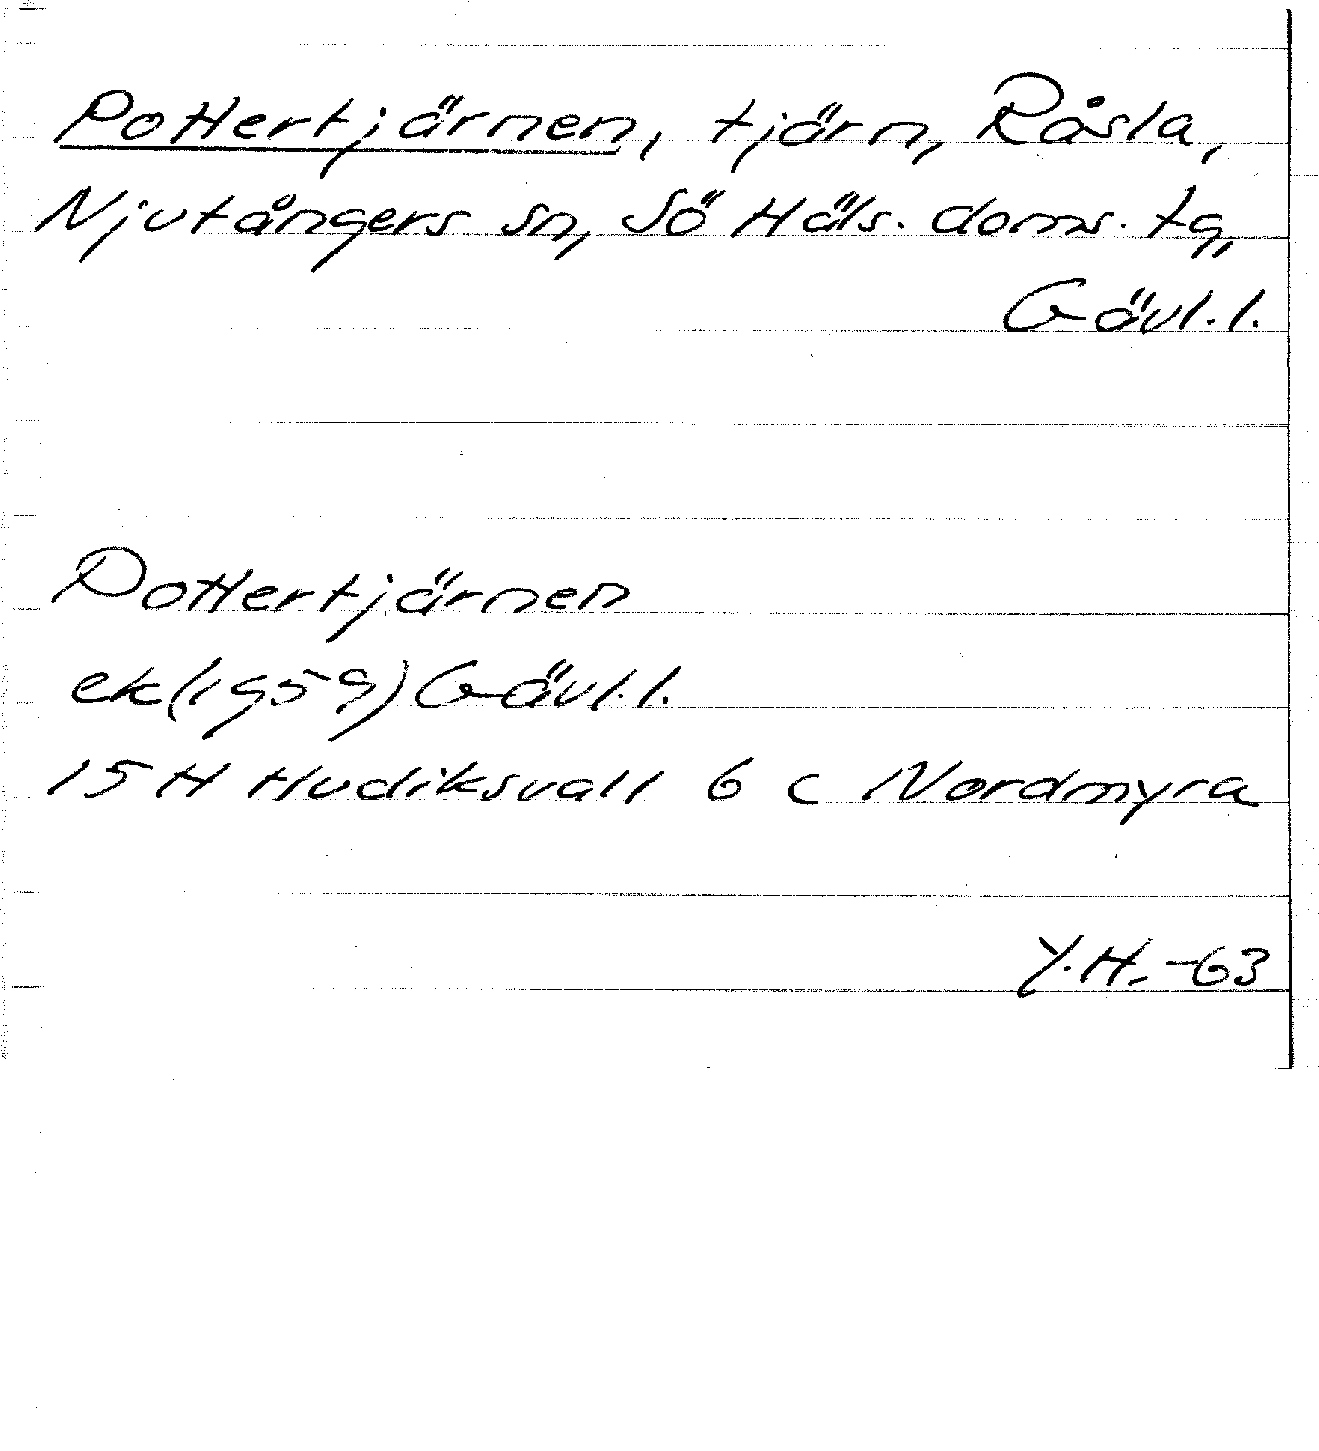 Pottertjärnen, tjärn, Råsla,
Njutångers sn, Sö Häls. doms. tg,
Gävl. l.
Pottertjärnen
ek (1959) Gävl. l.
15 H Hudiksvall 6 c Nordmyra
Y.H. -63